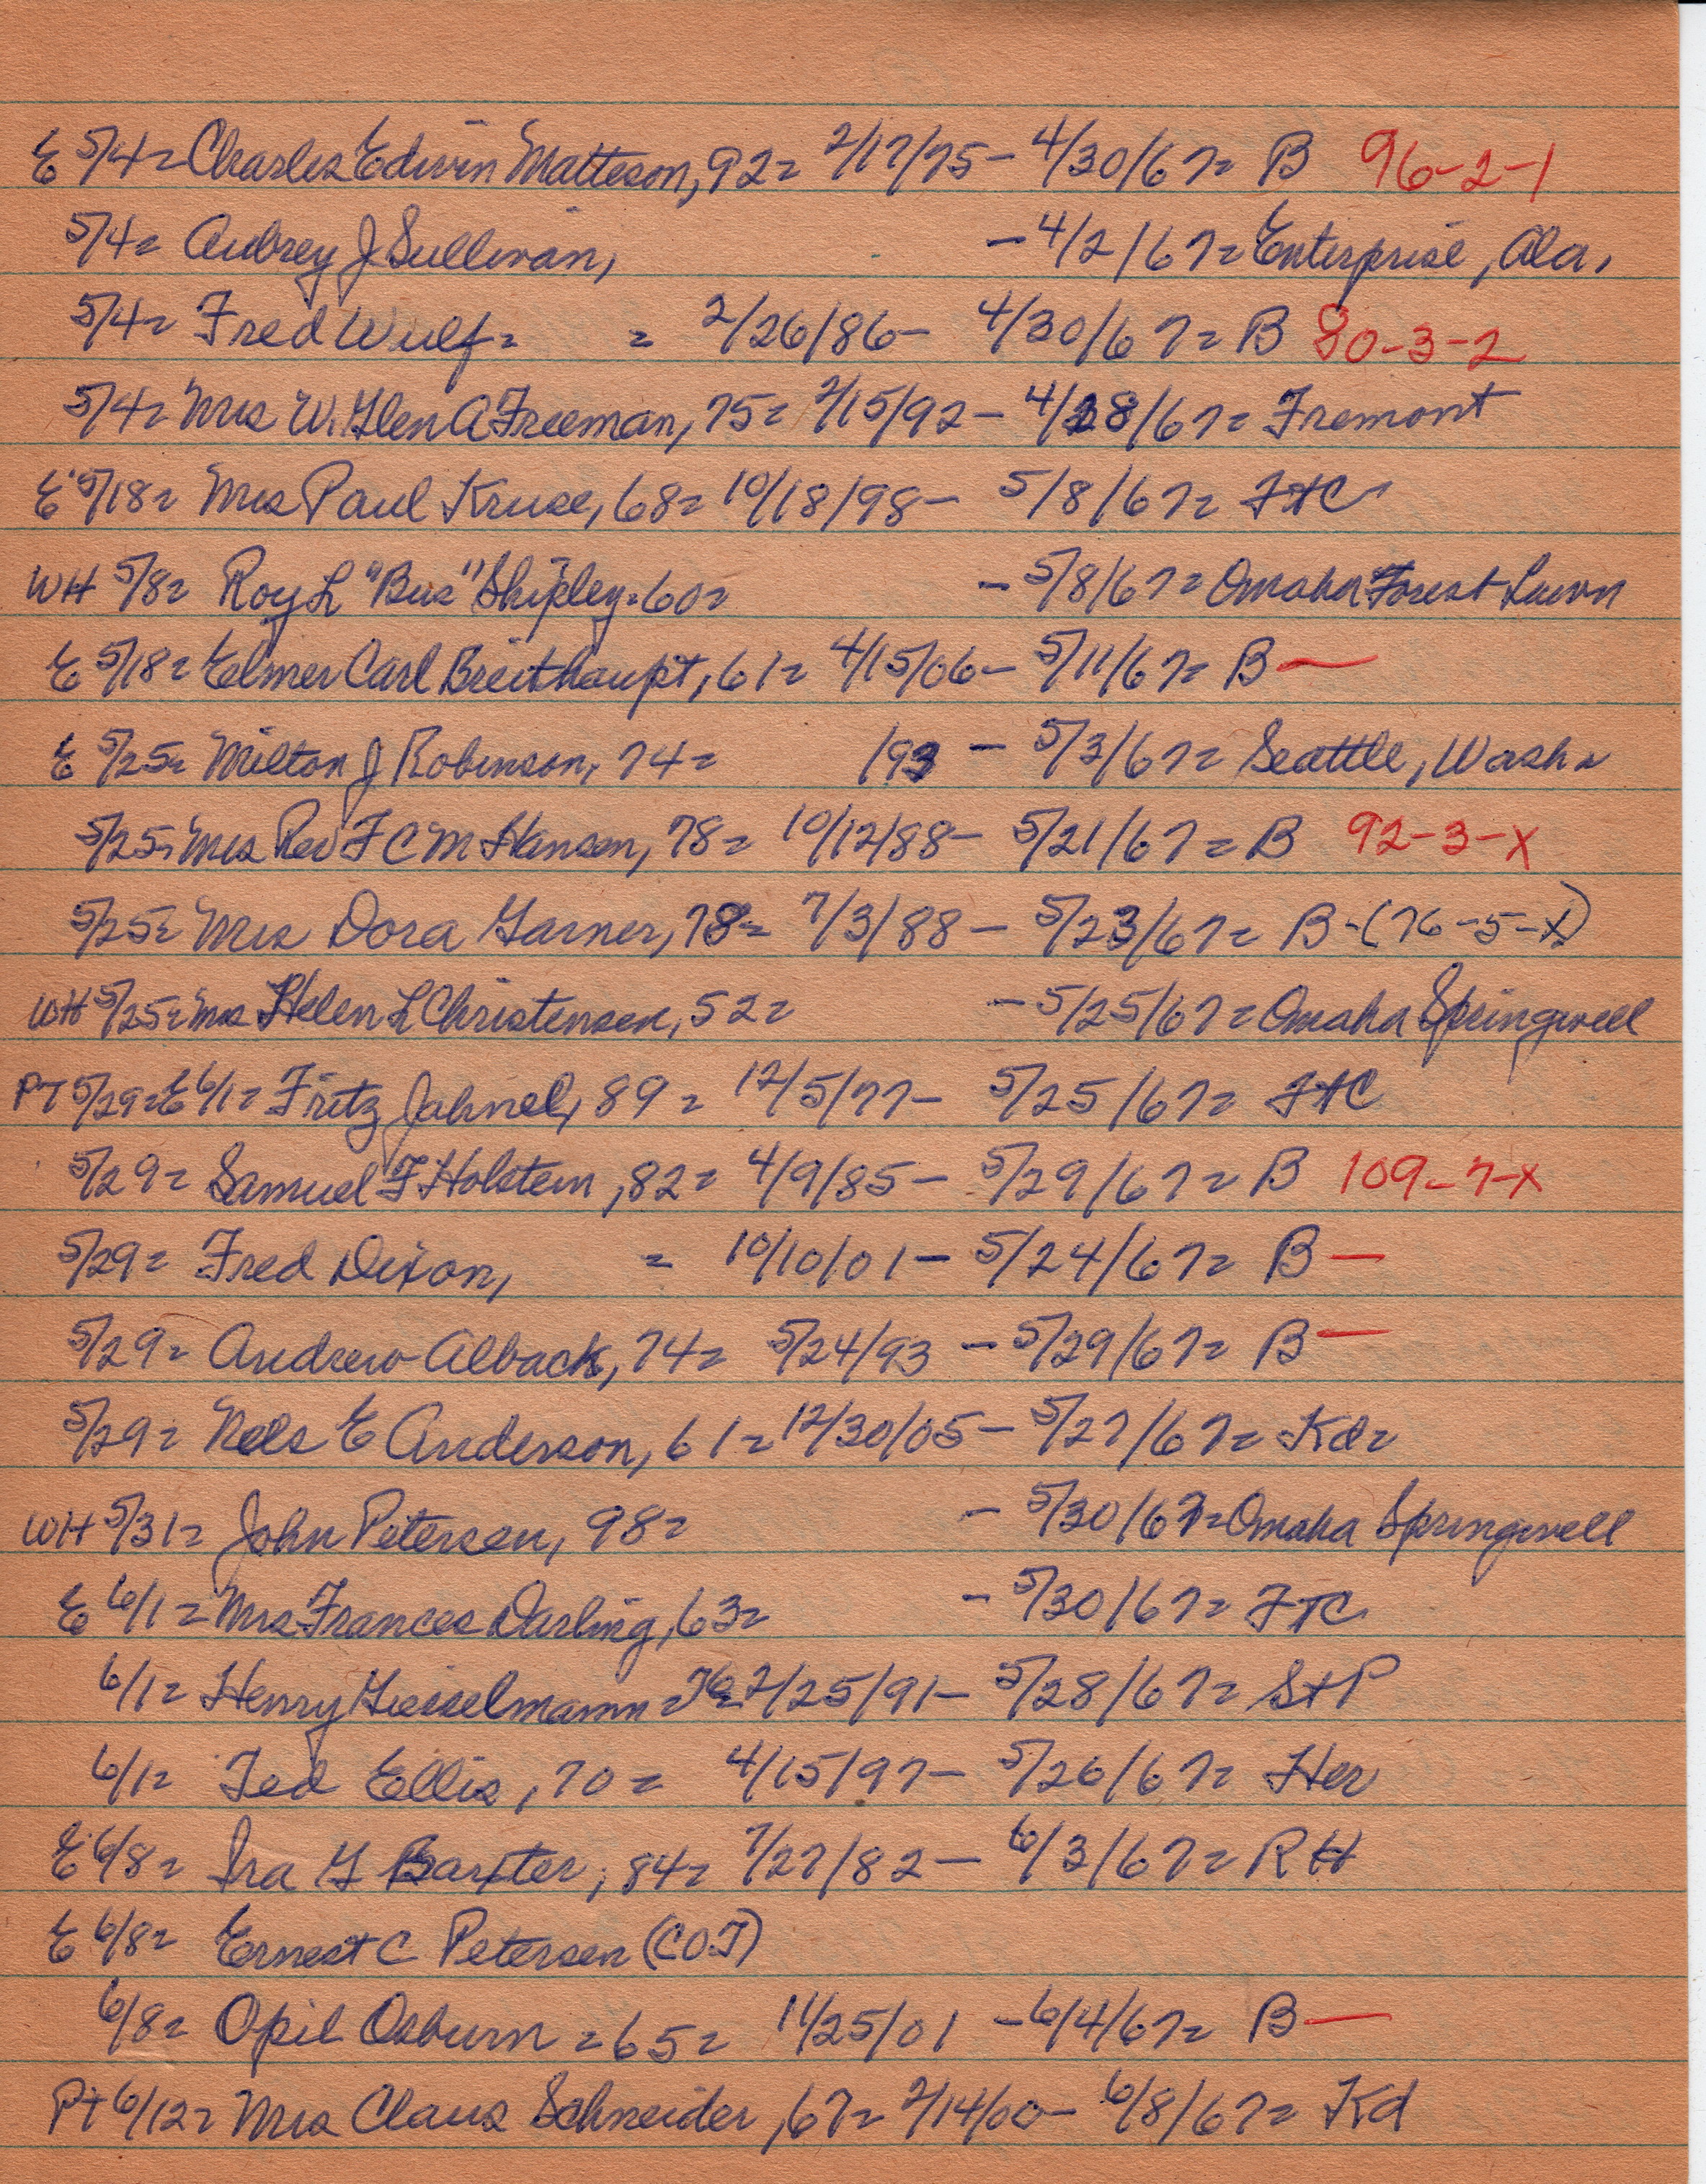 E 5/4= Charles Edwin Matteson, 92= 2/17/75- 4/30/67= B 96-2-1
5/4= Aubrey J Sullivan, -4/2/67= Enterprise, Ala.
5/4= Fred Wulf= = 2/26/86- 4/30/67= B 80-3-2
5/4= Mrs W. Glen A Freeman, 75= 2/15/92- 4/28/67= Fremont
E 5/18= Mrs Paul Kruse, 68= 10/18/98- 5/8/67= FtC
WH 5/8= Roy L "Bus" Shipley=60= - 5/8/67= Omaha Forest Lawn
E 5/18= Elmer Carl Breithaupt, 61= 4/15/06- 5/11/67= B—
E 5/25= Milton J Robinson, 74= /93 - 5/3/67= Seattle, Wash=
5/25= Mrs Rev F C M Hansen, 78= 10/12/88- 5/21/67= B 92-3-X
5/25= Mrs Dora Garner, 78= 7/3/88- 5/23/67= B-(76-5-X)
WH 5/25= Mrs Helen L Christensen, 52= -5/25/67= Omaha Springwell
PT 5/29=E 6/1= Fritz Jahnel, 89= 12/5/77- 5/25/67= FtC
5/29= Samuel F Holstein, 82= 4/9/85- 5/29/67= B 109-7-X
5/29= Fred Dixon, = 10/10/01- 5/24/67= B—
5/29= Andrew Alback, 74= 5/24/93 -5/29/67= B—
5/29= Nels E Anderson, 61= 12/30/05- 5/27/67= Kd=
WH 5/31= John Petersen, 98= - 5/30/67= Omaha Springwell
E 6/1= Mrs Frances Darling, 63= - 5/30/67= FtC
6/1= Henry Geiselmann =76= 2/25/91- 5/28/67= StP
6/1= Ted Ellis, 70= 4/15/97- 5/26/67= Her
E 6/8= Ira G Baxter, 84= 7/27/82- 6/3/67= RH
E 6/8= Ernest C Petersen (COT)
6/8= Opil Osburn =65= 11/25/01 -6/4/67= B—
Pt 6/12= Mrs Claus Schneider, 67= 2/14/00- 6/8/67= Kd